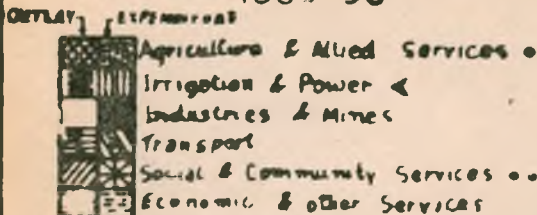 OUTLAY EXPENDITURE
Agriculture & Allied Services
Irrigation & Power
Industries & Mines
Transport
Social & Community Services
Economic & other Services